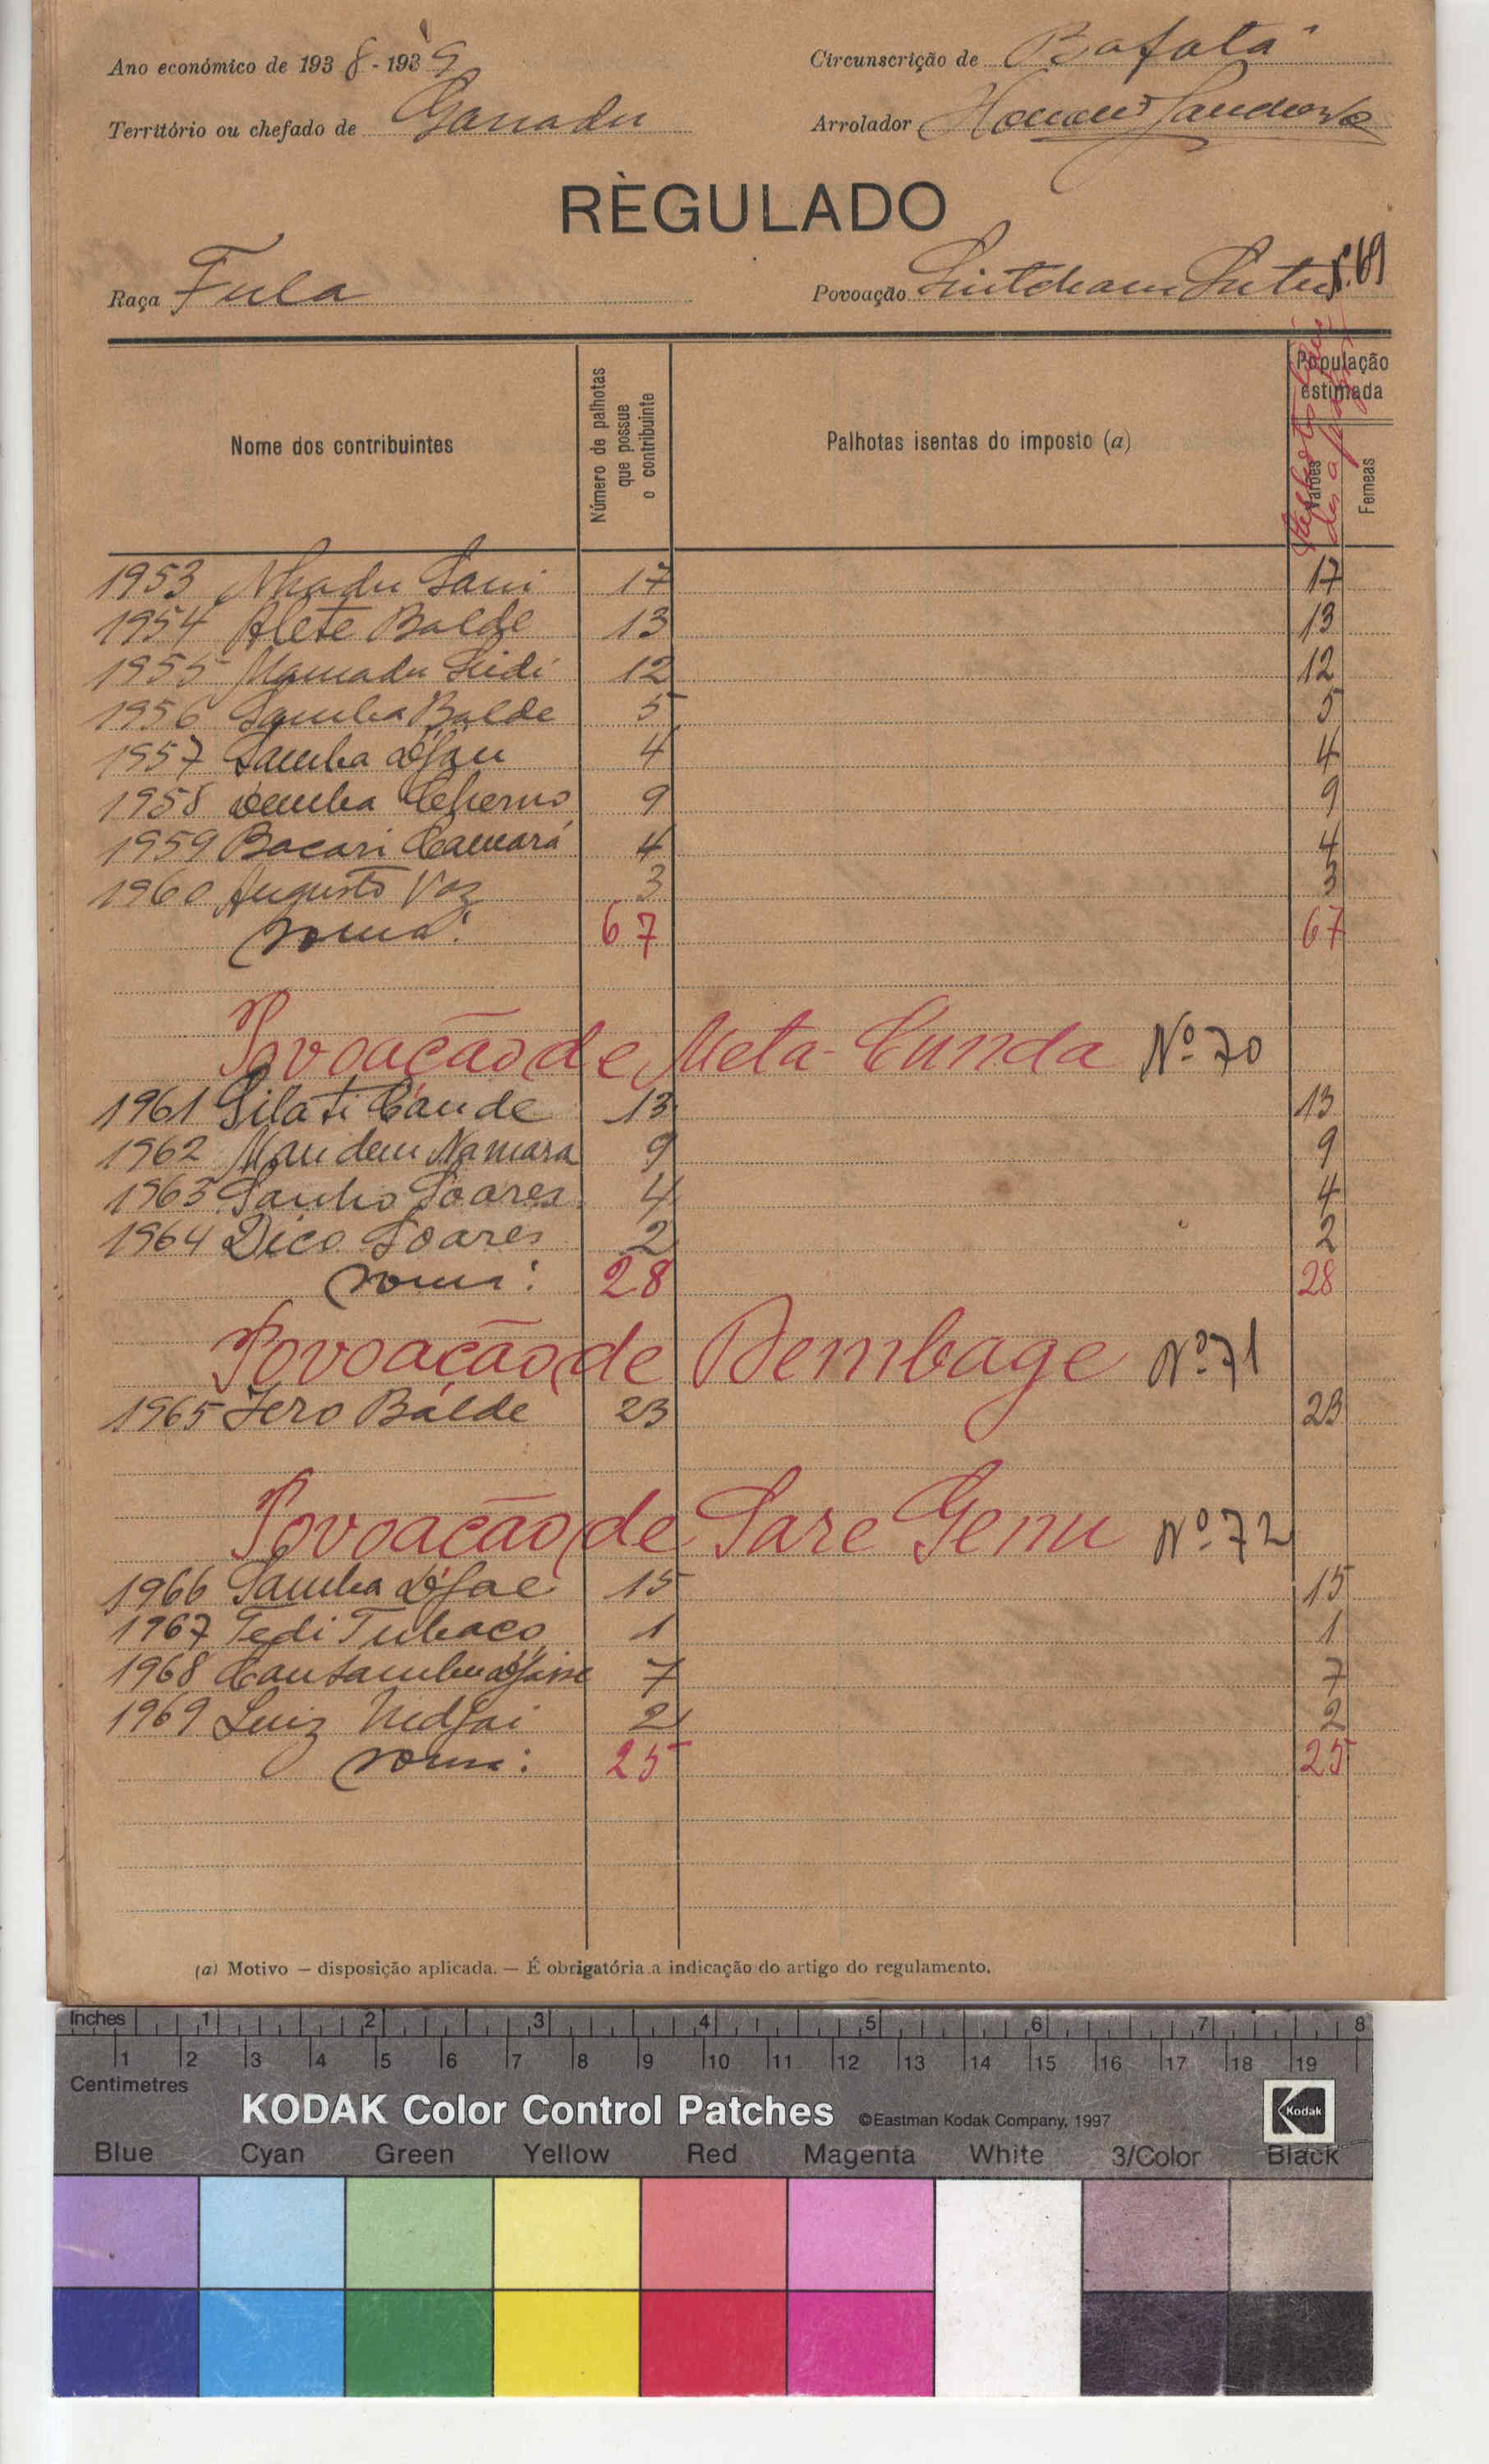 Ano económico de 1938-1939
Circunscrição de Bafatá
Território ou chefado de Ganadu
Arrolador
RÈGULADO
Raça Fula
Povoação
Nome dos contribuintes
Número de palhotas que possue o contribuinte
Palhotas isentas do imposto (a)
População estimada
Varões
Femeas
1953 17 17
1954 Alete Balde 13 13
1955 Mamadu Sidi 12 12
1956 Samba Balde 5 5
1957 Samba Djau 4 4
1958 Demba Tcherno 9 9
1959 Bacari Camará 4 4
1960 Augusto Vaz 3 3
soma: 67 67
Povoação de Meta-Cunda Nº 70
1961 Silati Cande 13 13
1962 Mandem Namara 9 9
1963 Sanho Soares 4 4
1964 Dico Soares 2 2
soma: 28 28
Povoação de Dembage Nº 71
1965 Jero Balde 23 23
Povoação de Sare Genu Nº 72
1966 Samba Djae 15 15
1967 Tedi Tubaco 1 1
1968 7 7
1969 Luiz 2 2
soma: 25 25
(a) Motivo — disposição aplicada. — É obrigatória a indicação do artigo do regulamento.
Inches 1 2 3 4 5 6 7 8
1 2 3 4 5 6 7 8 9 10 11 12 13 14 15 16 17 18 19
Centimetres
KODAK Color Control Patches ©Eastman Kodak Company, 1997 Kodak
Blue Cyan Green Yellow Red Magenta White 3/Color Black